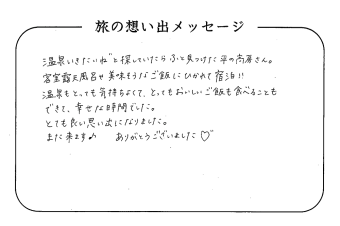 旅の想い出メッセージ
温泉いきたいねと探していたらふと見つけた平の高房さん。
客室露天風呂や美味そうなご飯にひかれて宿泊!!
温泉もとっても気持ちよくて、とってもおいしいご飯も食べることも
できて、幸せな時間でした。
とても良い思い出になりました。
また来ます♪ ありがとうございました♡